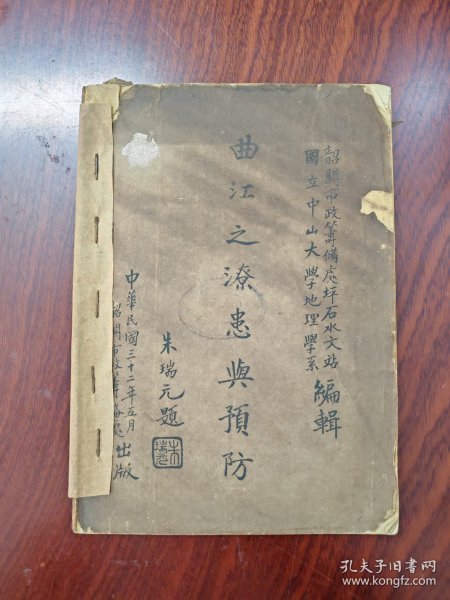 韶關市政籌備處坪石水文站
國立中山大學地理學系
編輯
曲江之潦患與預防
朱瑞元題
中華民國三十二年五月
韶關市政籌備處出版
孔夫子旧书网
www.kongfz.com